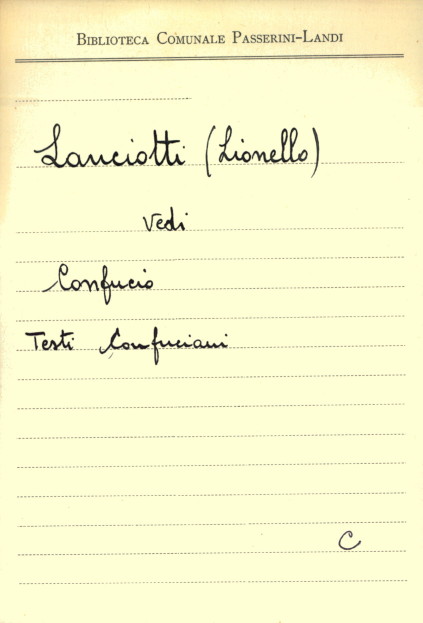 Biblioteca Comunale Passerini-Landi
Lanciotti (Lionello)
Vedi
Confucio
Testi Confuciani
C